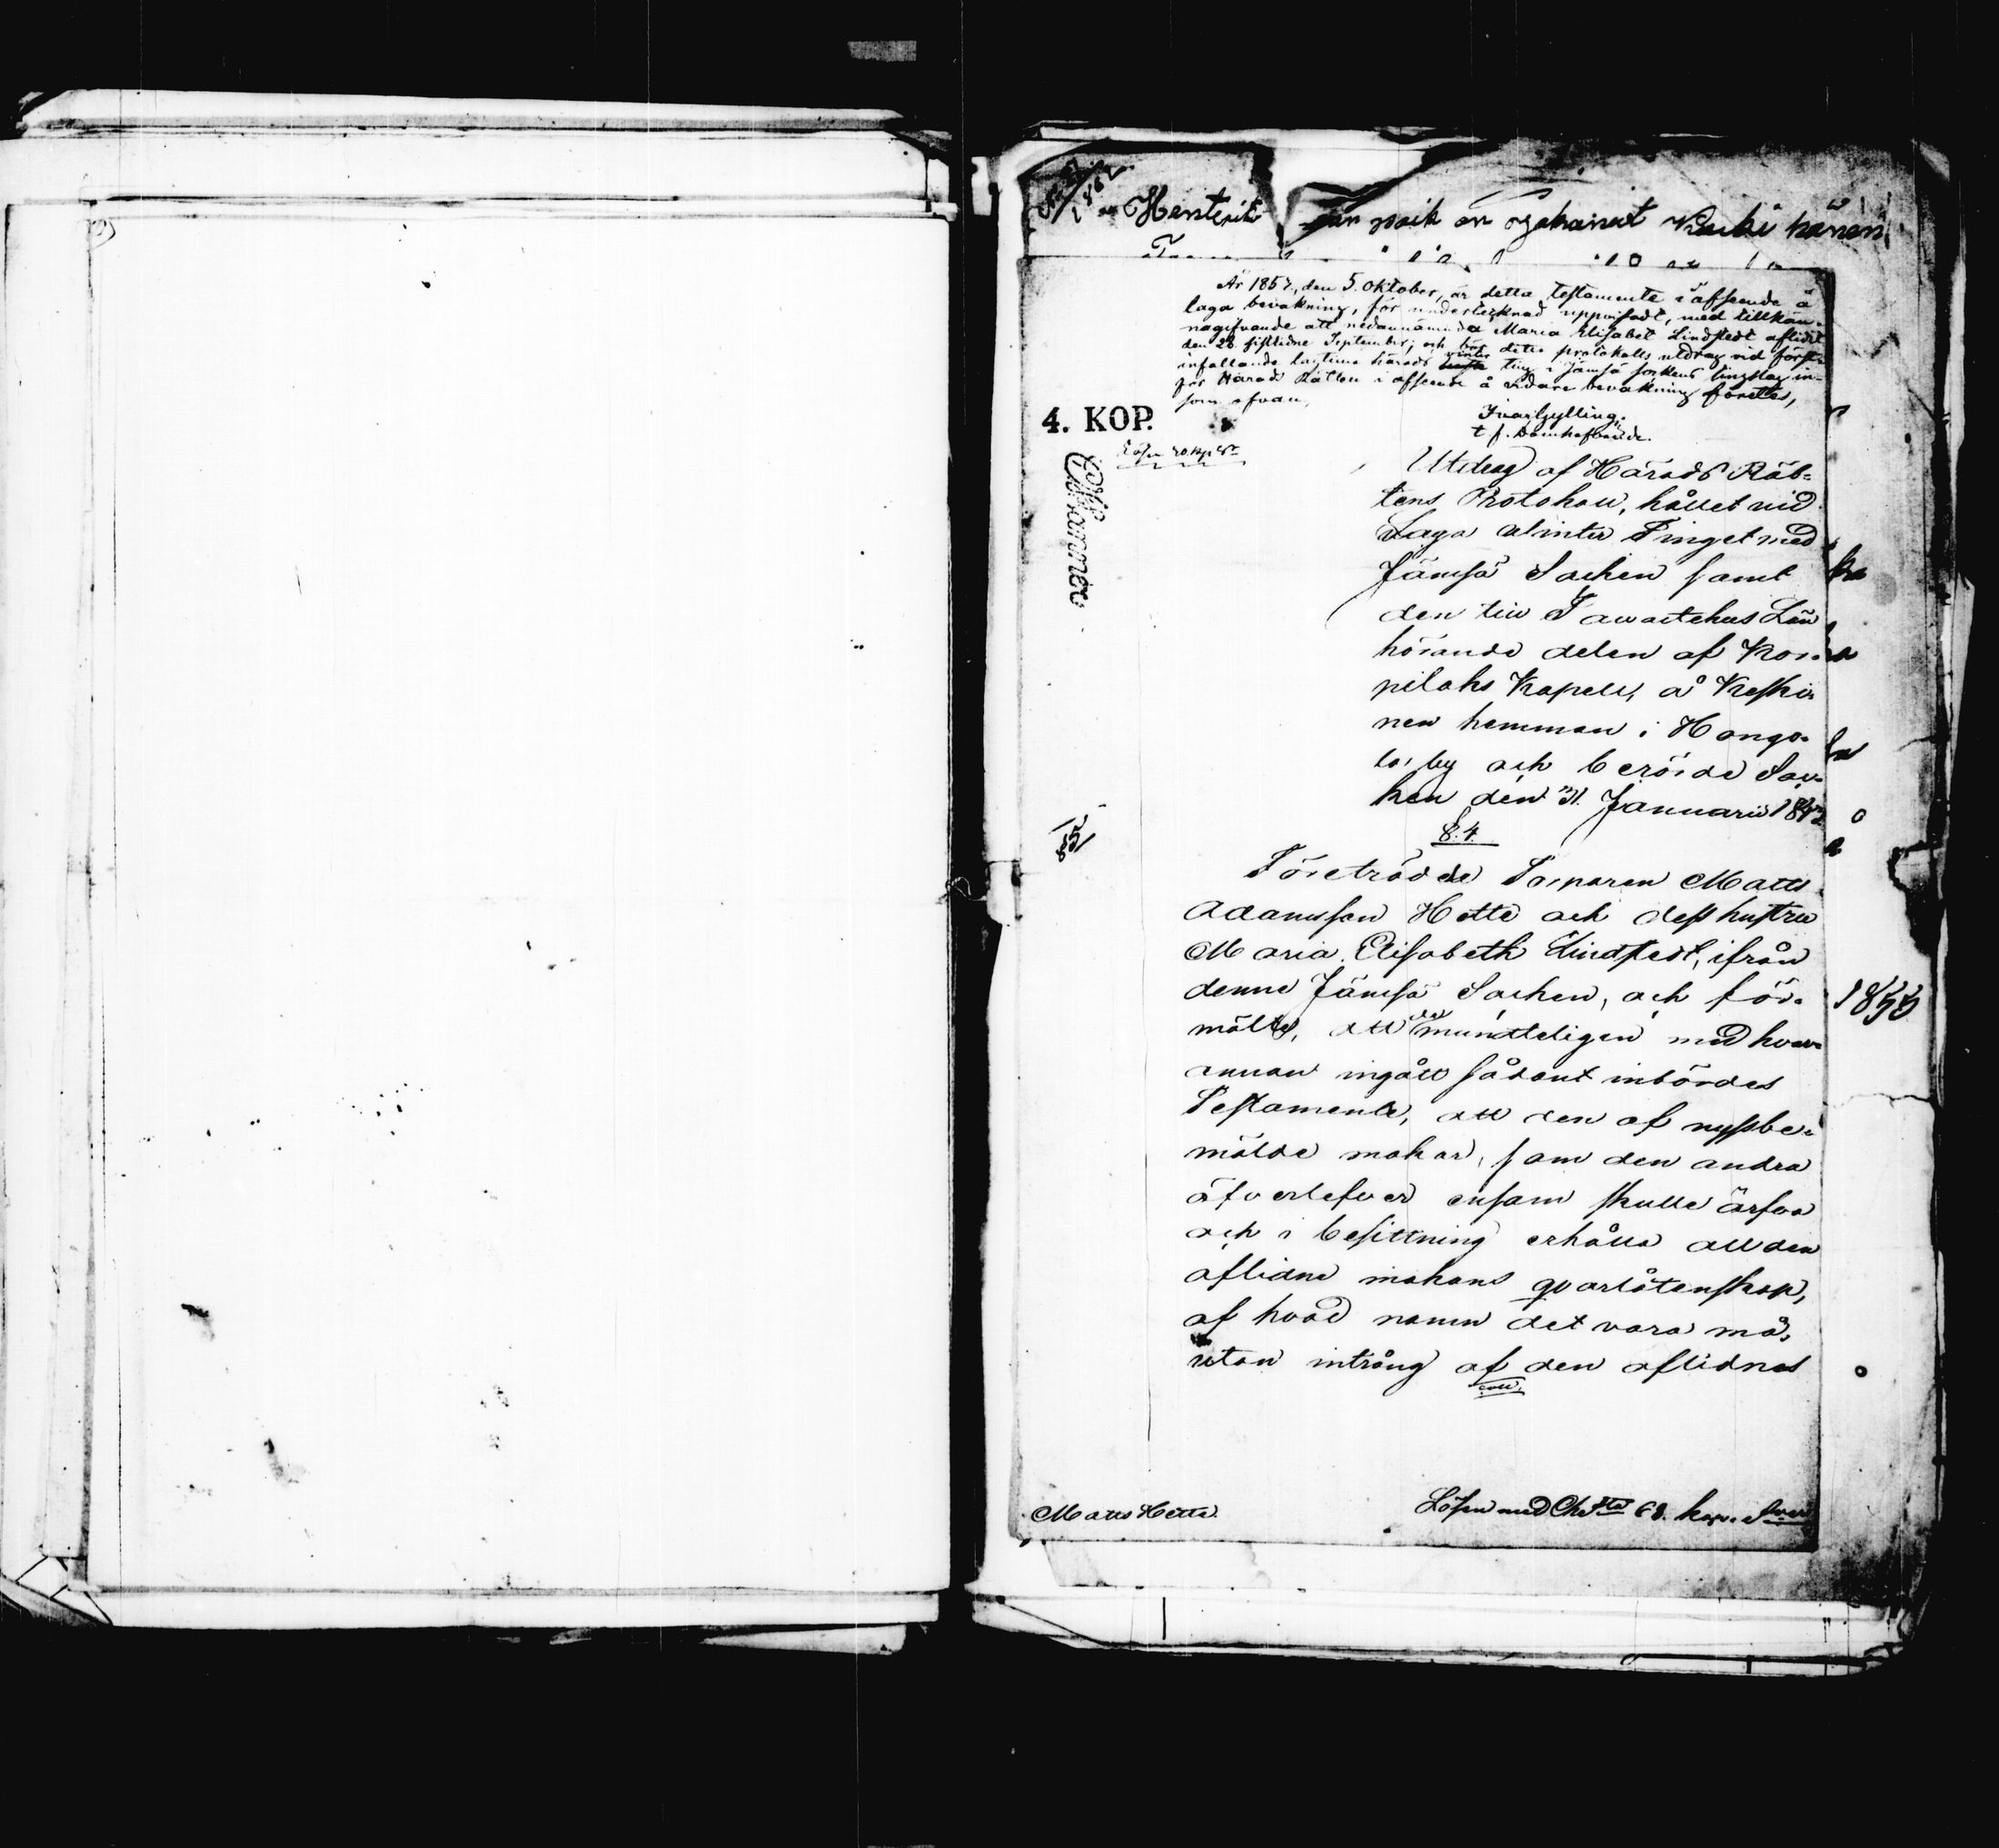 1862
Henterik
År 1857, den 5. Oktober, är detta testamente i afseende å
laga bevakning, för undertecknad uppvisadt, med tillkän-
nagifvande att nedannämnda Maria Elisabet Lindstedt aflidit
den 28. sistlidne September; och bör detta protokolls utdrag vid först
infallande lagtima härads vinter ting i Jämsä sockens tingslag in-
för Härads Rätten i afseende å vidare bevakning företes,
som ofvan,
Ivar Gylling.
t. f. Domhafvande.
4. KOP.
Utdrag af Härads Rät-
tens Protokoll, hållet vid
Laga Winter Tinget med
Jämsä Socken samt
den till Tawastehus Län
hörande delen af Kor-
pilaks Kapell, å Keski-
nen hemman i Hongo-
la by och berörde Soc-
ken den 31. Januarii 1842
§. 4.
Företrädde Torparen Matts
Adamsson Hette och dess hustru
Maria Elisabeth Lindstedt, ifrån
denne Jämsä Socken, och för-
mälte, att de mundteligen med hvar-
annan ingått sådant inbördes
Testamente, att den af nyssbe-
mälde makar, som den andra
öfverlefver ensam skulle ärfva
och i besittning erhålla all den
aflidne makans qvarlåtenskap,
af hvad namn det vara må,
utan intrång af den aflidnes
1855
Matts Hette.
Lösen med Chta 68. kop. Silver